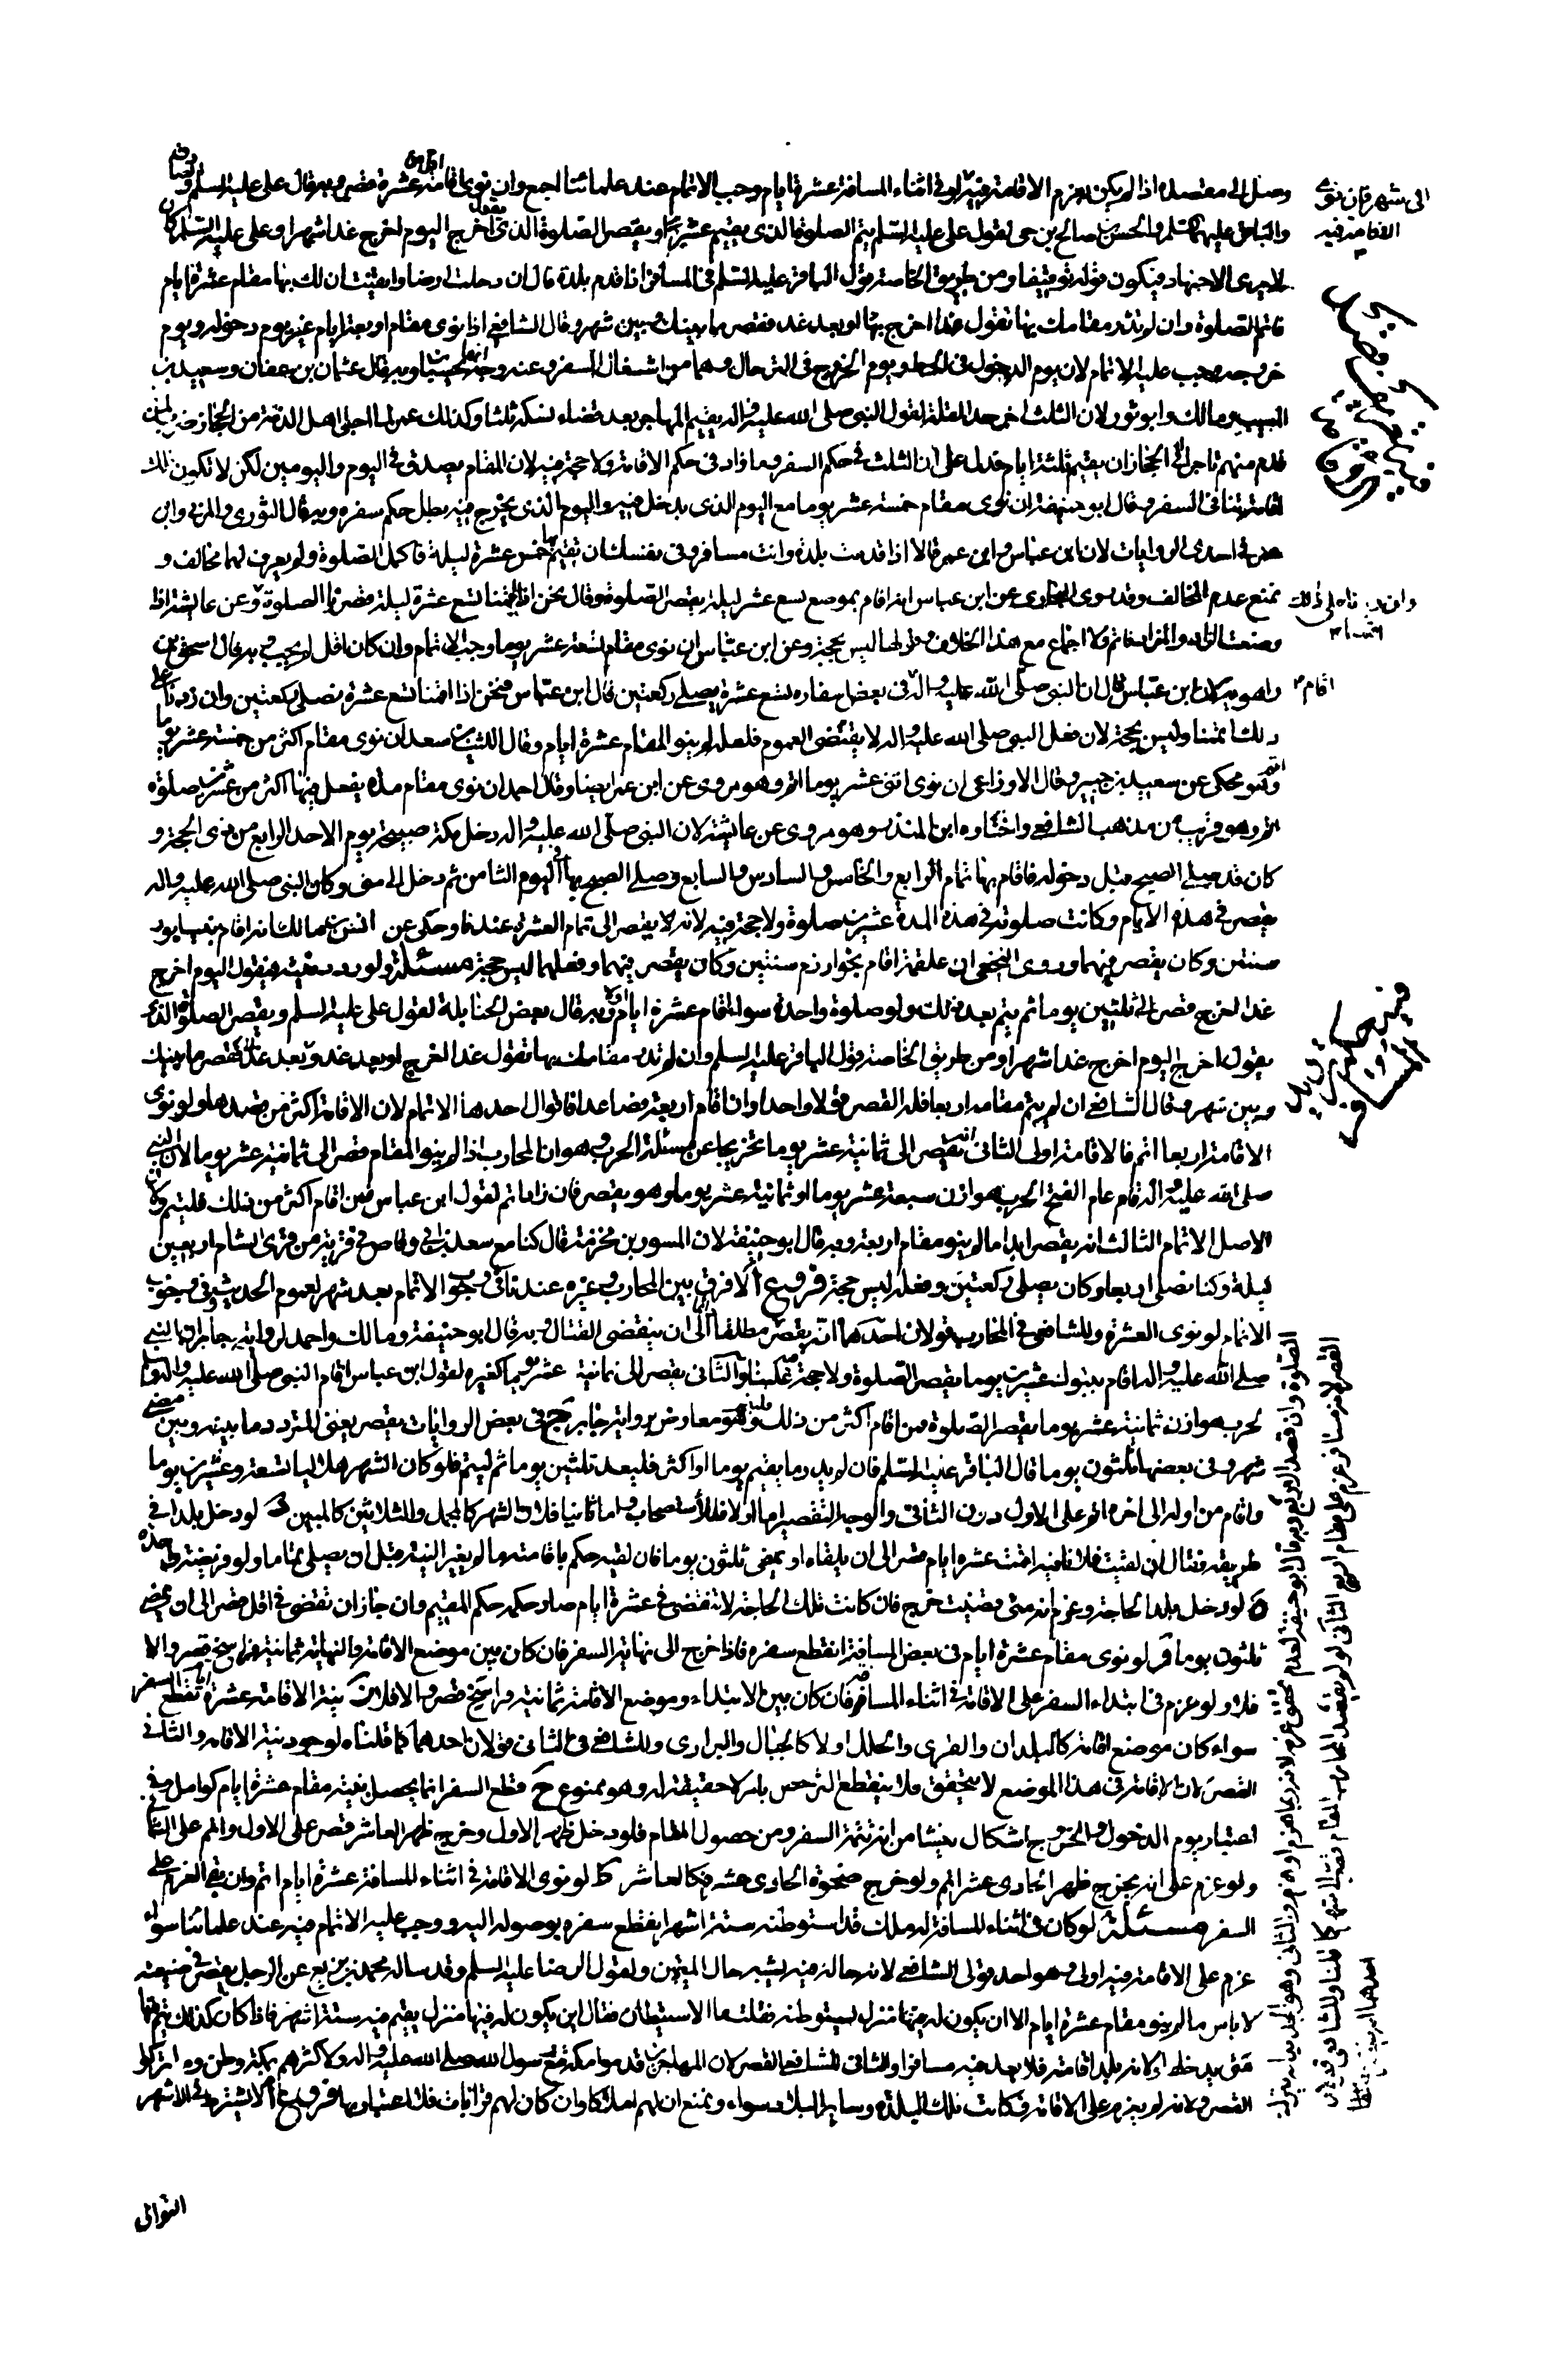 وصل الى مقصده اذا لم يكن عزم الاقامة فيه ولو في اثناء المسافة عشرة ايام وجب الاتمام عند علمائنا اجمع وان نوى اقامة دون عشرة قصر وبه قال علي عليه السلم والصادق
والباقر عليهما السلم والحسن بن صالح بن حي لقول علي عليه السلم يتم الصلوة الذي يقيم عشرا ويقصر الصلوة الذي يقول اخرج اليوم اخرج غدا شهرا وعلي عليه السلم كان
لا يرى الاجتهاد فيكون قوله توقيفا ومن طريق الخاصة قول الباقر عليه السلم في المسافر اذا قدم بلدة قال ان دخلت ارضا وايقنت ان لك بها مقام عشرة ايام
فاتم الصلوة وان لم تدر مقامك بها تقول غدا اخرج او بعد غد فقصر ما بينك وبين شهر وقال الشافعي اذا نوى مقام اربعة ايام غير يوم دخوله ويوم
خروجه وجب عليه الاتمام لان يوم الدخول في الحط ويوم الخروج في الترحال وهما من اشغال السفر وعنه وجه انهما يحسبان وبه قال عثمان بن عفان وسعيد بن
المسيب ومالك وابو ثور لان الثلث اخر حد القلة لقول النبي صلى الله عليه واله يقيم المهاجر بعد قضاء نسكه ثلثا وكذلك عمر لما اجلى اهل الذمة من الحجاز ضرب لمن
قدم منهم تاجرا الى الحجاز ان يقيم ثلثة ايام فدل على ان الثلث في حكم السفر وما زاد في حكم الاقامة ولا حجة فيه لان المقام يصدق في اليوم واليومين لكن لا تكون تلك
اقامة تنافي السفر وقال ابو حنيفة ان نوى مقام خمسة عشر يوما مع اليوم الذي يدخل فيه واليوم الذي يخرج فيه بطل حكم سفره وبه قال الثوري والمزني وابن
عمر في احدى الروايات لان ابن عباس وابن عمر قالا اذا قدمت بلدة وانت مسافر وفي نفسك ان تقيم بها خمس عشرة ليلة فاكمل الصلوة ولم يعرف لهما مخالف و
نمنع عدم المخالف وقد روى البخاري عن ابن عباس انه اقام بموضع تسع عشر ليلة يقصر الصلوة وقال نحن اذا اقمنا تسع عشرة ليلة قصرنا الصلوة وعن عايشة اذا
وضعت الزاد والمزاد فاتم فلا اجماع مع هذا الخلاف وقولهما ليس بحجة وعن ابن عباس ان نوى مقام تسعة عشر يوما وجب الاتمام وان كان اقل لم يجب وبه قال اسحق بن
راهويه لان ابن عباس قال ان النبي صلى الله عليه واله في بعض اسفاره تسع عشرة يصلي ركعتين قال ابن عباس فنحن اذا اقمنا تسع عشرة نصلي ركعتين وان زدنا على
ذلك اتممنا وليس بحجة لان فعل النبي صلى الله عليه واله لا يقتضي العموم فلعله لم ينو المقام عشرة ايام وقال الليث بن سعد ان نوى مقام اكثر من خمسة عشر يوما
اتم وهو محكى عن سعيد بن جبير وقال الاوزاعي ان نوى اثنى عشر يوما اتم وهو مروي عن ابن عمر ايضا وقال احمد ان نوى مقام مدة يفعل فيها اكثر من عشرين صلوة
اتم وهو قريب من مذهب الشافعي واختاره ابن المنذر وهو مروي عن عايشة لان النبي صلى الله عليه واله دخل مكة صبيحة يوم الاحد الرابع من ذي الحجة و
كان قد صلى الصبح قبل دخوله فاقام بها تمام الرابع والخامس والسادس والسابع وصلى الصبح بها في اليوم الثامن ثم دخل الى منى وكان النبي صلى الله عليه واله
يقصر في هذه الايام وكانت صلوته في هذه المدة عشرين صلوة ولا حجة فيه لانه لا يقصر الى تمام العشرة عندنا وحكى عن انس بن مالك انه اقام بنيسابور
سنتين وكان يقصر فيهما وروى النخعي ان علقمة اقام بخوارزم سنتين وكان يقصر فيهما وفعلهما ليس حجة مسئلة ولو ردد نيته فيقول اليوم اخرج
غدا اخرج قصر الى ثلثين يوما ثم يتم بعد ذلك ولو صلوة واحدة سواء اقام عشرة ايام او لا وبه قال بعض الحنابلة لقول علي عليه السلم ويقصر الصلوة الذي
يقول اخرج اليوم اخرج غدا شهرا ومن طريق الخاصة قول الباقر عليه السلم وان لم تدر مقامك بها تقول غدا اخرج او بعد غد فقصر ما بينك
وبين شهر وقال الشافعي ان لم يتم مقامه اربعا فله القصر قولا واحدا وان اقام اربعة فصاعدا فاقوال احدها الاتمام لان الاقامة اكثر من قصدها ولو نوى
الاقامة اربعا اتم فالاقامة اولى الثاني انه يقصر الى ثمانية عشر يوما تخريجا عن مسئلة الحرب وهو ان المحارب اذا لم ينو المقام قصر الى ثمانية عشر يوما لان النبي
صلى الله عليه واله اقام عام الفتح لحرب هوازن سبعة عشر يوما او ثمانية عشر يوما وهو يقصر فان زاد اتم لقول ابن عباس فمن اقام اكثر من ذلك فليتم ولان
الاصل الاتمام الثالث انه يقصر ابدا ما لم ينو مقام اربعة وبه قال ابو حنيفة لان المسور بن مخرمة قال كنا مع سعد بن ابي وقاص في قرية من قرى الشام اربعين
ليلة وكنا نصلي اربعا وكان يصلي ركعتين وفعله ليس حجة فروع ا لا فرق بين المحارب وغيره عندنا في وجوب الاتمام بعد شهر لعموم الحديث وفي وجوب
الاتمام لو نوى العشرة وللشافعي في المحارب قولان احدهما انه يقصر مطلقا الى ان ينقضي القتال وبه قال ابو حنيفة ومالك واحمد لرواية جابر ان النبي
صلى الله عليه واله اقام بتبوك عشرين يوما يقصر الصلوة ولا حجة فيه كمكسنا والثاني يقصر الى ثمانية عشر يوما كغيره لقول ابن عباس اقام النبي صلى الله عليه واله
لحرب هوازن ثمانية عشر يوما يقصر الصلوة فمن اقام اكثر من ذلك فليتم وهو معارض برواية جابر ج في بعض الروايات يقصر يعني المتردد ما بينه وبين مضي
شهر وفي بعضها ثلثون يوما قال الباقر عليه السلم فان لم يدر ما يقيم يوما او اكثر فليعد ثلثين يوما ثم ليتم فلو كان الشهر هلاليا تسعة وعشرين يوما
واقام من اوله الى اخره اتم على الاول دون الثاني والوجه التقصير اما اولا فللاستصحاب واما ثانيا فلان الشهر كالمجمل والثلاثين كالمبين د لو دخل بلدا في
طريقه فقال ان لقيت فلانا فيه اقمت عشرة ايام قصر الى ان يلقاه او يمضي ثلثون يوما فان لقيه حكم باقامته ما لم يغير النية قبل ان يصلي تماما ولو فريضة واحدة
ه لو دخل بلدا لحاجة وعزم انه متى قضيت خرج فان كانت تلك الحاجة لا تنقضي في عشرة ايام صار حكمه حكم المقيم وان جاز ان تنقضي في اقل قصر الى ان يمضي
ثلثون يوما و لو نوى مقام عشرة ايام في بعض المسافة انقطع سفره فاذا خرج الى نهاية السفر فان كان بين موضع الاقامة والنهاية ثمانية فراسخ قصر والا
فلا ولو عزم في ابتداء السفر على الاقامة في اثناء المسافة فان كان بين الابتداء وموضع الاقامة ثمانية فراسخ قصر والا فلا ز نية الاقامة عشرة ايام تقطع السفر
سواء كان موضع اقامة كالبلدان والقرى والحلل اولا كالجبال والبراري وللشافعي في الثاني قولان احدهما كما قلناه لوجود نية الاقامة والثاني
القصر لان الاقامة في هذا الموضع لا تتحقق فلا ينقطع الترخص بامر لا حقيقة له وهو ممنوع ح قطع السفر انما يحصل بنية مقام عشرة ايام كوامل وفي
اعتبار يوم الدخول والخروج اشكال ينشا من انه نهاية السفر ومن حصول المقام فلو دخل ظهر الاول وخرج ظهر العاشر قصر على الاول واتم على الثاني
ولو عزم على انه يخرج ظهر الحادي عشر اتم ولو خرج ضحوة الحادي عشر فكالعاشر ط لو نوى الاقامة في اثناء المسافة عشرة ايام اتم وان بقي العزم على
السفر مسئلة لو كان في اثناء المسافة له ملك قد استوطنه ستة اشهر انقطع سفره بوصوله اليه ووجب عليه الاتمام فيه عند علمائنا سواء
عزم على الاقامة فيه اولا وهو احد قولي الشافعي لانه حاله فيه يشبه حال المقيمين ولقول الرضا عليه السلم وقد ساله محمد بن بزيع عن الرجل يقصر في ضيعته
لا باس ما لم ينو مقام عشرة ايام الا ان يكون له فيها منزل يستوطنه فقلت ما الاستيطان فقال ان يكون له فيها منزل يقيم فيه ستة اشهر فاذا كان كذلك يتم فيها
متى يدخلها ولانه بلد اقامته فلا يعد فيه مسافرا والثاني للشافعي القصر لان المهاجرين قدموا مكة مع رسول الله صلى الله عليه واله ولاكثرهم بمكة وطن
القصر ولانه لم يعزم على الاقامة فكانت تلك البلدة وساير البلاد سواء ونمنع ان لهم املاكا وان كان لهم قرابات فلا اعتبار بها فروع ا لا يشترط في الاشهر
التوالي
الى شهر فان نوى
الاقامة فيه
اقام